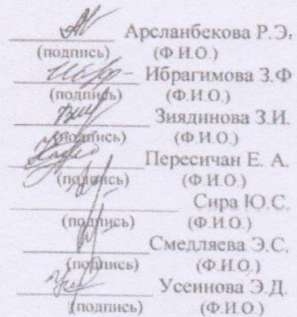 Арсланбекова Р.Э.
(подпись) (Ф.И.О.)
Ибрагимова З.Ф
(подпись) (Ф.И.О.)
Зиядинова З.И.
(подпись) (Ф.И.О.)
Пересичан Е. А.
(подпись) (Ф.И.О.)
Сира Ю.С.
(подпись) (Ф.И.О.)
Смедляева Э.С.
(подпись) (Ф.И.О.)
Усеинова Э.Д.
(подпись) (Ф.И.О.)